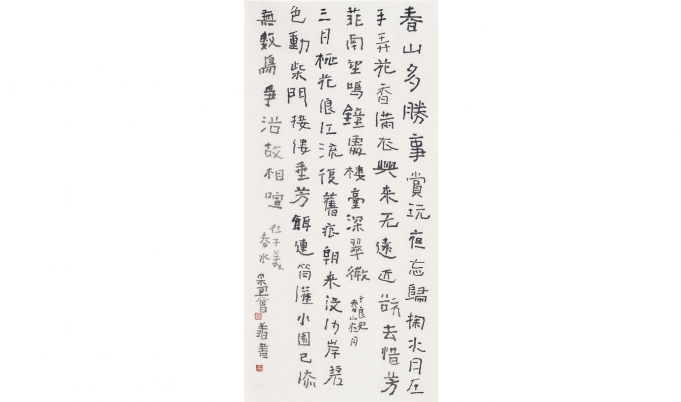 春山多勝事賞玩夜忘歸掬水月在
手弄花香滿衣興来无遠近欲去惜芳
菲南望鳴鐘處樓臺深翠微
于良史
春山夜月
三月桃花浪江流復舊痕朝来没沙岸碧
色動柴門接縷垂芳餌連筒灌小園已添
無數鳥爭浴故相喧
杜子美
春水